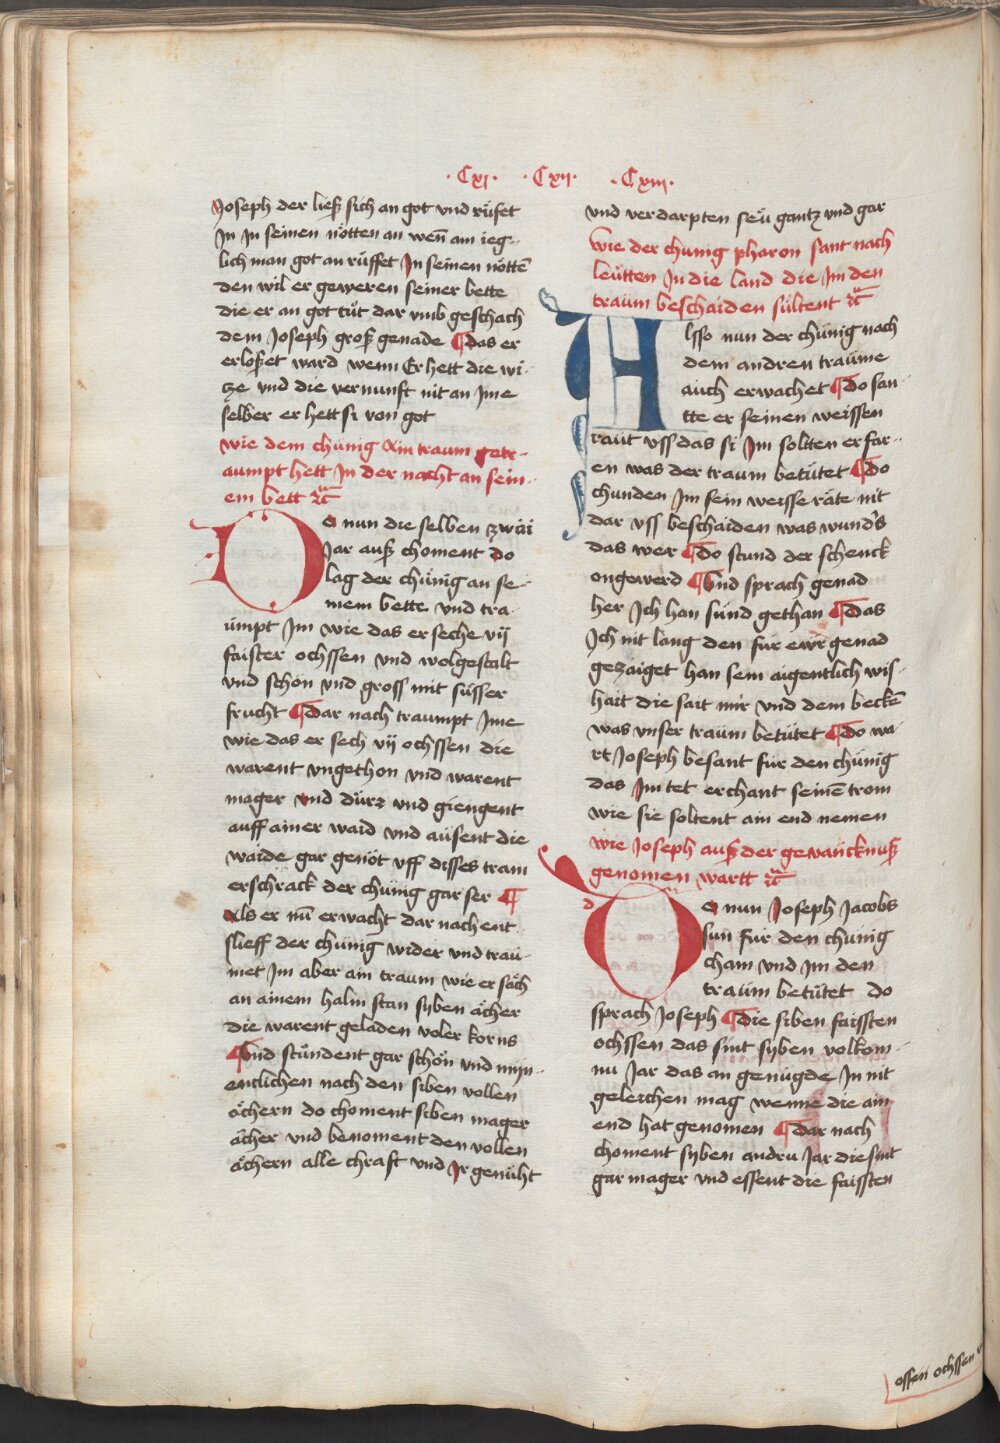 ·Cxj· ·Cxij· ·Cxiij·
Joseph der ließ sich an got vnd rüfet
Jn Jn seinen nötten an wen̄ ain ieg-
lich man got an rüffet Jn seinen nötten̄
den wil er geweren seiner bette
die er an got tüt dar vmb geschach
dem Joseph groß genade ¶das er
erloßet ward wenn Er hett die wi-
tze vnd die vernunft nit an Jme
selber er hett si von got
wie dem chünig ain traum getr-
aumpt hett Jn der nacht an sein-
em bett
Do nun die selben zwäi
Jar auß choment do
lag der chünig an se-
inem bette vnd tra-
umpt Jm wie das er seche vij
faister ochssen vnd wolgestalt
vnd schön vnd gross mit süsser
frucht ¶Dar nach traumpt Jme
wie das er sech vij ochssen die
warent vngethon vnd warent
mager vnd dürz vnd giengent
auff ainer waid vnd ausent die
waide gar genöt vff disses tram
erschrack der chünig gar ser ¶
Als er nū erwacht dar nach ent
slieff der chünig wider vnd trau-
met Jm aber ain traum wie er säch
an ainem halm stan syben ächer
die warent geladen voler korns
¶Vnd stündent gar schön vnd mijn-
enclichen nach den siben vollen
ächern do choment siben mager
ächer vnd benoment den vollen
ächern alle chraft vnd Jr genüht
vnd verdarpten seü gantz vnd gar
wie der chunig pharon sant nach
leütten Jn die land die Jm den
traum beschaiden sültent
Alsso nun der chünig nach
dem andren traume
auch erwachet ¶Do san-
tte er seinen weissen
raut vss das si Jm soltten erfar-
en was der traum betütet ¶Do
chunden Jm sein weisse räte nit
dar vss beschaiden was wund's
das wer ¶Do stund der schenck
ongewerd ¶Vnd sprach genad
her Jch han sünd gethan ¶Das
Jch nit lang den für ewr̄ genad
gezaiget han sein aigentlich wis-
hait die sait mir vnd dem beckē
was vnser traum betütet ¶Do wa-
rt Joseph besant für den chünig
das Jm tet erchant seinē trom
wie sie soltent ain end nemen
wie Joseph auß der geväncknuß
genomen wartt
Do nun Joseph Jacobs
sun für den chünig
cham vnd Jm den
traum betütet do
sprach Joseph ¶Die siben faissten
ochssen das sint syben volkom-
nu Jar das an genügde Jn nit
geleichen mag wenne die ain
end hat genomen ¶Dar nach
choment syben andru Jar die sint
gar mager vnd essent die faissten
ossen ochssen